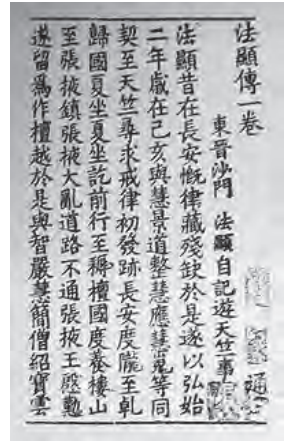 法顯傳一卷
東晉沙門 法顯自記遊天竺事
法顯昔在長安慨律藏殘缺於是遂以弘始
二年歲在己亥與慧景道整慧應慧嵬等同
契至天竺尋求戒律初發跡長安度隴至乹
歸國夏坐夏坐訖前行至耨檀國度養樓山
至張掖鎮張掖大亂道路不通張掖王慇懃
遂留為作檀越於是與智嚴慧簡僧紹寶雲
通